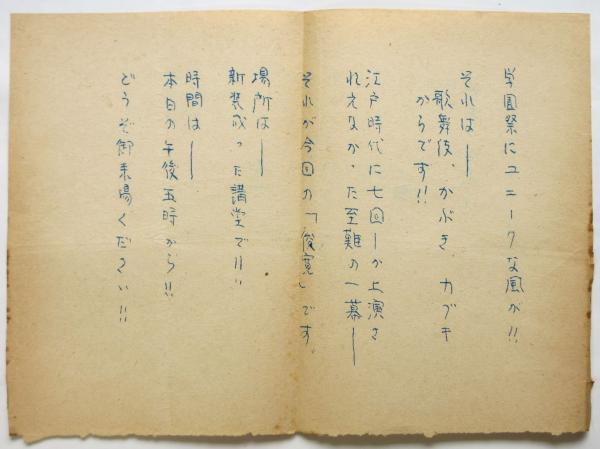 学園祭にユニークな風が!!
それは――
歌舞伎、かぶき カブキ
からです!!
江戸時代に七回しか上演さ
れえなかった至難の一幕――
それが今回の「俊寛」です。
場所は――
新装成った講堂で!!!
時間は――
本日の午後五時から!!
どうぞ御来場ください!!